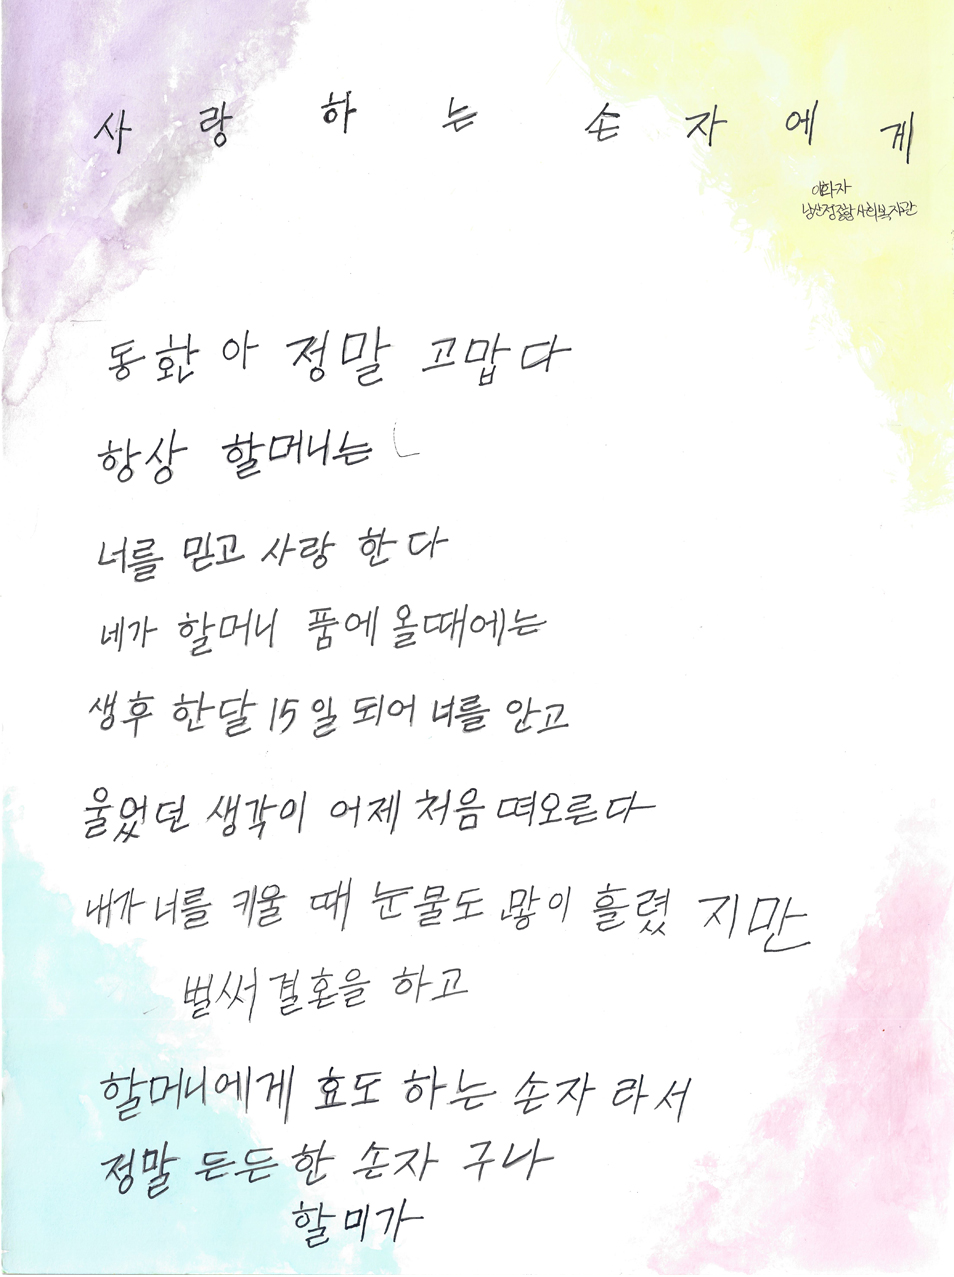 사랑하는 손자에게
이화자
남산정종합사회복지관
동환아 정말 고맙다
항상 할머니는
너를 믿고 사랑 한다
네가 할머니 품에 올때에는
생후 한달 15일 되어 너를 안고
울었던 생각이 어제 처음 떠오른다
내가 너를 키울 때 눈물도 많이 흘렸 지만
벌써 결혼을 하고
할머니에게 효도 하는 손자 라서
정말 든든 한 손자 구나
할미가